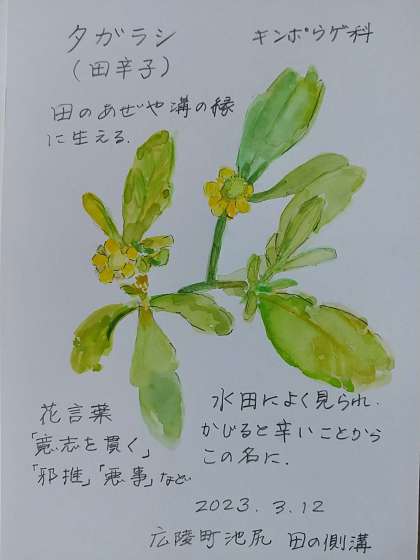 タガラシ
キンポウゲ科
(田辛子)
田のあぜや溝の縁
に生える.
花言葉
「意志を貫く」
「邪推」「悪事」など
水田によく見られ.
かじると辛いことから
この名に.
2023. 3. 12
広陵町池尻 田の側溝